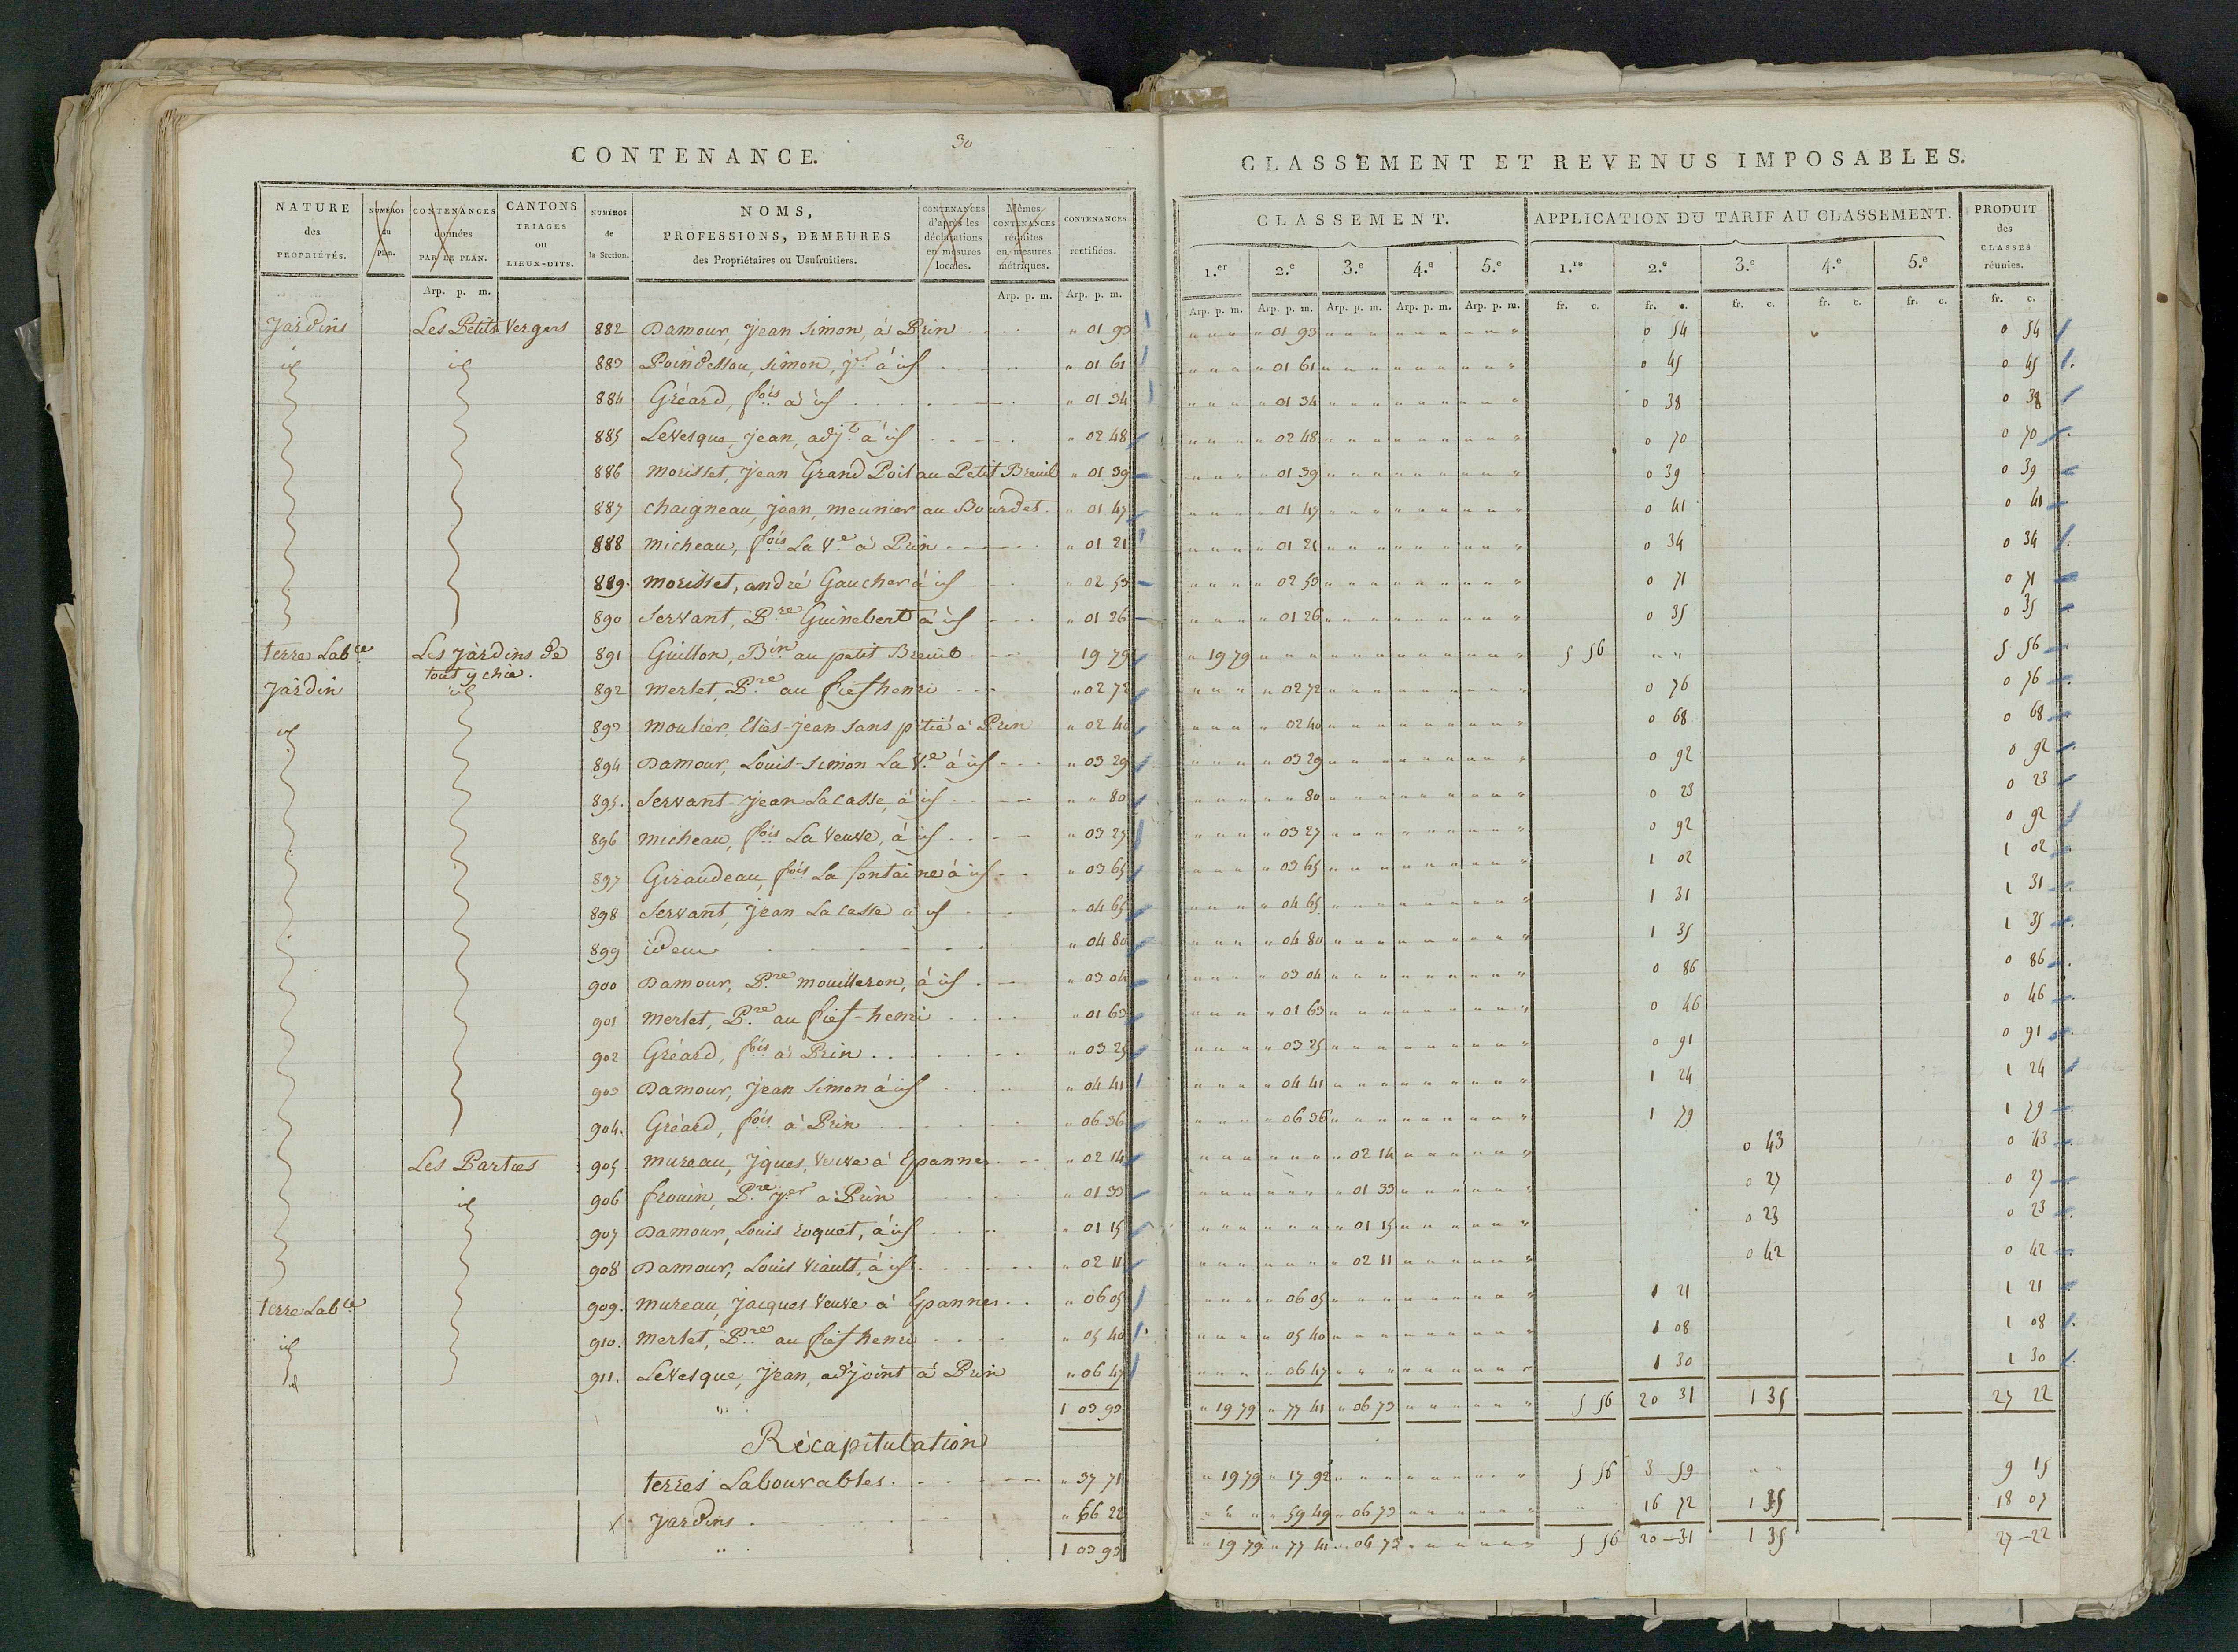 30
CONTENANCE.
NATURE des PROPRIÉTÉS. | NUMÉROS du Plan. | CONTENANCES données PAR LE PLAN. | CANTONS TRIAGES ou LIEUX-DITS. | NUMÉROS de la Section. | NOMS, PROFESSIONS, DEMEURES des Propriétaires ou Usufruitiers. | CONTENANCES d'après les déclarations en mesures locales. | Mêmes CONTENANCES réduites en mesures métriques. | CONTENANCES rectifiées.
Arp. p. m. | Arp. p. m. | Arp. p. m.
Jardins Les Petits Vergers 882 Damour, Jean Simon, à Prin " 01 93
id id 883 Poindessou, Simon, Jne à id " 01 61
884 Gréard, fois à id " 01 34
885 Levesque, Jean, adjt à id " 02 48
886 Morisset, Jean Grand Poil au Petit Breuil " 01 39
887 Chaigneau, Jean, meunier au Bourdet " 01 47
888 Micheau, fois La Ve à Prin " 01 21
889. Morisset, andré Gaucher à id " 02 53
890 Servant, Pre Guinebert à id " 01 26
terre Lable Les Jardins de tout y chie. 891 Guillon, Bin au petit Breuil 19 79
Jardin id 892 Merlet, Pre au fief henri " 02 72
id 893 Moulier, Elies-Jean sans pitié à Prin " 02 40
894 Damour, Louis-Simon La Ve à id " 03 29
895. Servant Jean Lacasse, à id " " 80
896 Micheau, fois La Veuve, à id " 03 27
897 Giraudeau, fois La fontaine à id " 03 65
898 Servant, Jean Lacasse à id " 04 65
899 idem " 04 80
900 Damour, Pre mouilleron, à id " 03 04
901 Merlet, Pre au fief-henri " 01 63
902 Gréard, fois à Prin " 03 25
903 Damour, Jean Simon à id " 04 41
904. Gréard, fois à Prin " 06 36
Les Parties 905 Mureau, Jques, Veuve à Epannes " 02 14
id 906 frouin, Pre Jer à Prin " 01 33
907 Damour, Louis roquet, à id " 01 15
908 Damour, Louis Viault, à id " 02 11
Terre Lable 909. Mureau, Jacques Veuve à Epannes " 06 05
id 910. Merlet, Pre au fief henri " 05 40
id 911. Levesque, Jean, adjoint à Prin " 06 47
1 03 93
Récapitulation
terres Labourables " 37 71
Jardins " 66 22
1 03 93
CLASSEMENT ET REVENUS IMPOSABLES.
CLASSEMENT. | APPLICATION DU TARIF AU CLASSEMENT. | PRODUIT des CLASSES réunies.
1.er 2.e 3.e 4.e 5.e | 1.re 2.e 3.e 4.e 5.e
Arp. p. m. Arp. p. m. Arp. p. m. Arp. p. m. Arp. p. m. fr. c. fr. c. fr. c. fr. c. fr. c. fr. c.
" 01 93 | 0 54 | 0 54
" 01 61 | 0 45 | 0 45
" 01 34 | 0 38 | 0 38
" 02 48 | 0 70 | 0 70
" 01 39 | 0 39 | 0 39
" 01 47 | 0 41 | 0 41
" 01 21 | 0 34 | 0 34
" 02 53 | 0 71 | 0 71
" 01 26 | 0 35 | 0 35
" 19 79 | 5 56 | " " | 5 56
" 02 72 | 0 76 | 0 76
" 02 40 | 0 68 | 0 68
" 03 29 | 0 92 | 0 92
" " 80 | 0 23 | 0 23
" 03 27 | 0 92 | 0 92
" 03 65 | 1 02 | 1 02
" 04 65 | 1 31 | 1 31
" 04 80 | 1 35 | 1 35
" 03 04 | 0 86 | 0 86
" 01 63 | 0 46 | 0 46
" 03 25 | 0 91 | 0 91
" 04 41 | 1 24 | 1 24
" 06 36 | 1 79 | 1 79
" 02 14 | 0 43 | 0 43
" 01 33 | 0 27 | 0 27
" 01 15 | 0 23 | 0 23
" 02 11 | 0 42 | 0 42
" 06 05 | 1 21 | 1 21
" 05 40 | 1 08 | 1 08
" 06 47 | 1 30 | 1 30
" 19 79 " 77 41 " 06 73 | 5 56 | 20 31 | 1 35 | 27 22
" 19 79 " 17 92 | 5 56 | 3 59 | " " | 9 15
" 59 49 " 06 73 | " " | 16 72 | 1 35 | 18 07
" 19 79 " 77 41 " 06 73 | 5 56 | 20-31 | 1 35 | 27-22